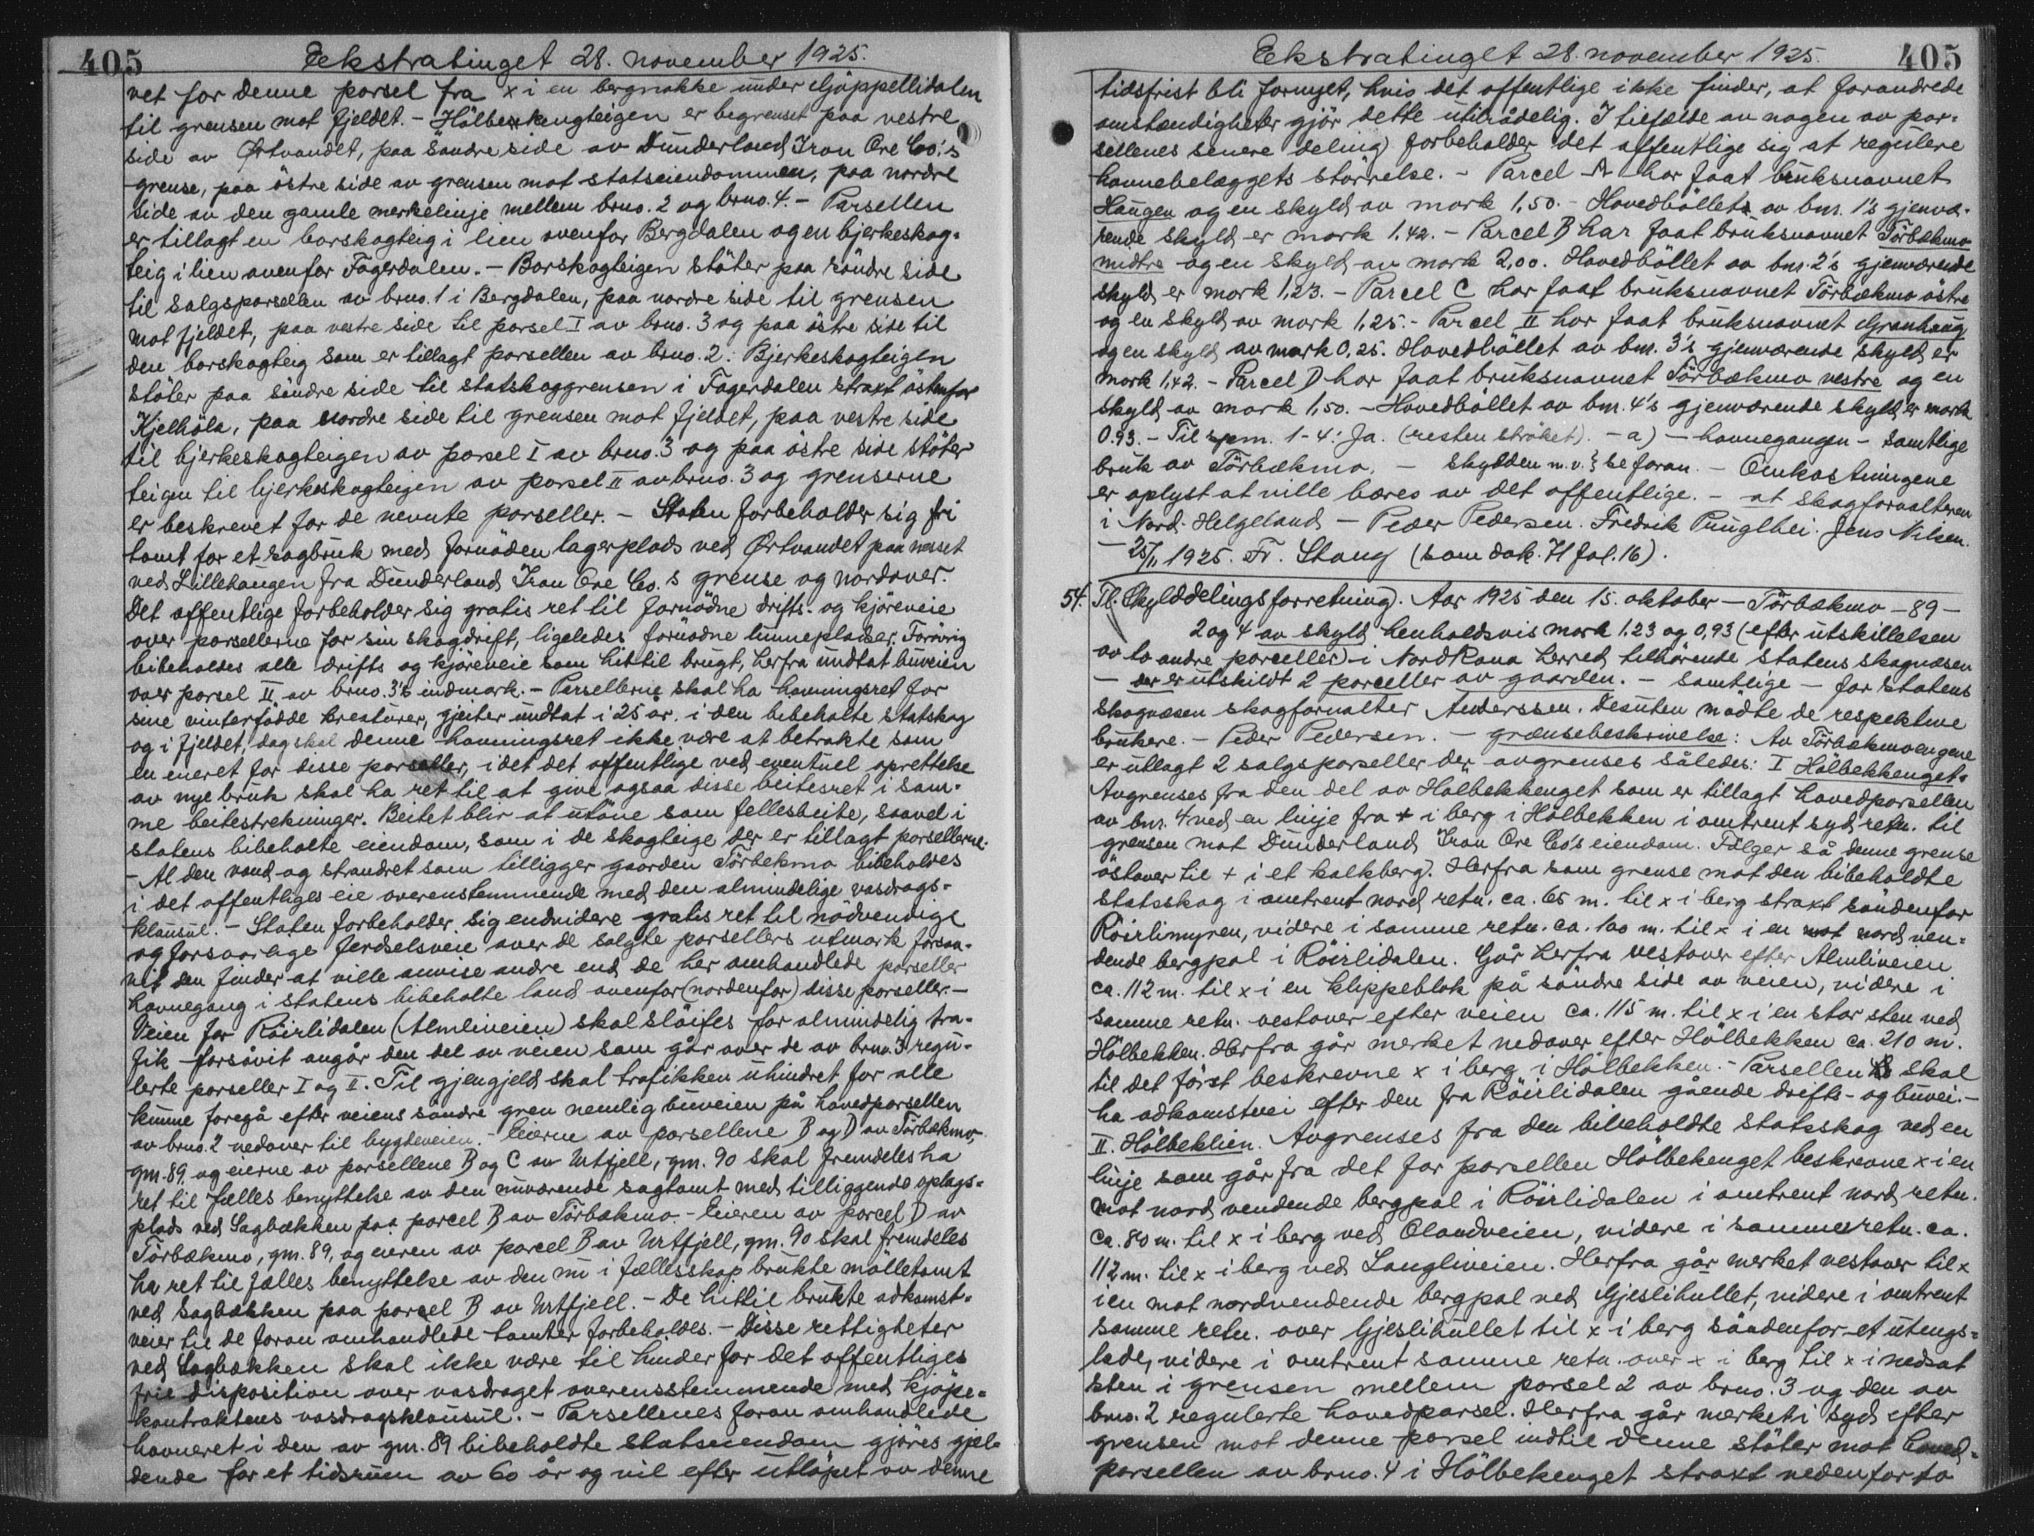 405 Ekstratinget 28. november 1925.
vet for denne porsel fra x i en bergnakke under Gjöppellidalen
til grensen mot fjeldet. - Hölbekkengteigen er begrenset paa vestre
side av Ørtvandet, paa söndre side av Dunderland Iron Ore Co.'s
grense, paa östre side av grensen mot statseiendommen, paa nordre
side av den gamle merkelinje mellem brno. 2 og brno. 4. - Parsellen
er tillagt en barskogteig i lien ovenfor Bergdalen og en bjerkeskog-
teig i lien ovenfor Fagerdalen. - Barskogteigen stöter paa söndre side
til salgsparsellen av brno. 1 i Bergdalen, paa nordre side til grensen
mot fjeldet, paa vestre side til porsel I av brno. 3 og paa östre side til
den barskogteig som er tillagt porsellen av brno. 2. Bjerkeskogteigen
stöter paa söndre side til statskoggrensen i Fagerdalen straxt östenfor
Kjelhöla, paa nordre side til grensen mot fjeldet, paa vestre side
til bjerkeskogteigen av porsel I av brno. 3 og paa östre side stöter
teigen til bjerkeskogteigen av porsel II av brno. 3 og grenserne
er beskrevet for de nevnte porseller. - Staten forbeholder sig fri
tomt for et sagbruk med fornöden lagerplads ved Ørtvandet paa nesset
ved Lillehaugen fra Dunderland Iron Ore Co.'s grense og nordover.
Det offentlige forbeholder sig gratis ret til fornödne drifts- og kjöreveie
over porsellerne for sin skogdrift, ligeledes fornödne tunneplasser. Forövrig
bibeholdes alle drifts og kjöreveie som hittil brugt, herfra undtat buveien
over porsel II av brno. 3's indmark. - Parsellerne skal ha havningsret for
sine vinterfödde kreaturer, gjeiter undtat i 25 år. i den bibeholte statskog
og i fjeldet, dog skal denne havningsret ikke være at betrakte som
en eneret for disse porseller, idet det offentlige ved eventuel oprettelse
av nye bruk skal ha ret til at give ogsaa disse beitesret i sam-
me beitestrekninger. Beitet blir at utöve som fellesbeite, saavel i
statens bibeholte eiendom, som i de skogteige der er tillagt porsellerne.
- Al den vand- og strandret som tilligger gaarden Törbekmo bibeholdes
i det offentliges eie overenstemmende med den almindelige vasdrags-
klausul. - Staten forbeholder sig endvidere gratis ret til nödvendige
og forsvarlige ferdselsveie over de solgte porsellers utmark forsaa-
vit den finder at ville anvise andre end de her omhandlede porseller
havnegang i statens bibeholte land ovenfor (nordenfor) disse porseller. -
Veien for Röirlidalen (Almliveien) skal slöifes for almindelig tra-
fik forsåvit angår den del av veien som går over de av brno. 3 regu-
lerte porseller I og II. Til gjengjeld skal trafikken uhindret for alle
kunne foregå efter veiens söndre gren nemlig buveien på hovedporsellen
av brno. 2 nedover til bygdeveien. - Eierne av porsellene B og D av Törbekmo,
gm. 89, og eierne av porsellene B og C av Urtfjell, gm. 90 skal fremdeles ha
ret til fælles benyttelse av den nuværende sagtomt med tilliggende oplags-
plads ved Sagbækken paa parcel B av Törbækmo. - Eieren av parcel D av
Törbækmo, gm. 89, og eieren av parcel B av Urtfjell, gm. 90 skal fremdeles
ha ret til fælles benyttelse av den nu i fællesskap brukte mölletomt
ved Sagbækken paa porcel B av Urtfjell. - De hittil brukte adkomst-
veier til de foran omhandlede tomter forbeholdes. - Disse rettigheter
ved Sagbækken skal ikke være til hinder for det offentliges
frie disposition over vasdraget overensstemmende med kjöpe-
kontraktens vasdragsklausul. - Parsellenes foran omhandlede
havneret i den av gm. 89 bibeholdte statseiendom gjöres gjel-
dende for et tidsrum av 60 år og vil efter utlöpet av denne
Ekstratinget 28. november 1925. 405
tidsfrist bli fornyet, hvis det offentlige ikke finder, at forandrede
omstændigheter gjör dette utilrådelig. I tilfælde av nogen av por-
sellenes senere deling forbeholder det offentlige sig at regulere
havnebelæggets störrelse. - Parcel A har faat bruksnavnet
Haugen og en skyld av mark 1,50. - Hovedböllets av bnr. 1's gjenvæ-
rende skyld er mark 1.42. - Parcel B har faat bruksnavnet Törbækmo
midtre og en skyld av mark 2,00. Hovedböllet av bnr. 2's gjenværende
skyld er mark 1,23. - Parcel C har faat bruksnavnet Törbækmo östre
og en skyld av mark 1,25. - Parcel II har faat bruksnavnet Granhaug
og en skyld av mark 0,25. Hovedböllet av bnr. 3's gjenværende skyld er
mark 1,42. - Parcel D har faat bruksnavnet Törbækmo vestre og en
skyld av mark 1,50. - Hovedböllet av bnr. 4's gjenværende skyld er mark
0.93. - Til spm. 1-4: Ja. (resten ströket). - a) - havnegangen - samtlige
bruk av Törbækmo. - Skylden m.v. se foran. - Omkostningene
er oplyst at ville bæres av det offentlige. - at skogforvalteren
i Nord-Helgeland - Peder Pedersen. Fredrik Pruglhei. Jens Nilsen.
- 25/11 1925. Fr. Stang (som dok. H fol. 16).
54. Tl. Skylddelingsforretning. Aar 1925 den 15. oktober - Törbækmo - 89 -
2 og 4 av skyld henholdsvis mark 1.23 og 0,93 (efter utskillelsen
av to andre parceller) i Nord Rana herred tilhörende statens skogvæsen
- der er utskildt 2 parceller av gaarden. - Samtlige - for statens
skogvæsen skogforvalter Anderssen. Desuten mödte de respektive
brukere. - Peder Pedersen. - grænsebeskrivelse: Av Törbækmoengene
er utlagt 2 salgsporseller der avgrenses således: I Hölbekkenget.
Avgrenses fra den del av Hölbekkenget som er tillagt hovedporsellen
av bnr. 4 ved en linje fra + i berg i Hölbekken i omtrent syd retn. til
grensen mot Dunderland Iron Ore Co's eiendom. Fölger så denne grense
östover til + i et kalkberg. Herfra som grense mot den bibeholdte
statsskog i omtrent nord retn. ca. 65 m. til x i berg straxt söndenfor
Röirlimyren, videre i samme retn. ca. 100 m. til x i en mot nord ven-
dende bergpal i Röirlidalen. Går herfra vestover efter Almliveien
ca. 112 m. til x i en klippeblok på söndre side av veien, videre i
samme retn. vestover efter veien ca. 115 m. til x i en stor sten ved
Hölbekken. Herfra går merket nedover efter Hölbekken ca. 210 m.
til det först beskrevne x i berg i Hölbekken. - Parsellen skal
ha adkomstvei efter den fra Röirlidalen gående drifts- og buvei. -
II. Hölbeklien. Avgrenses fra den bibeholdte statsskog ved en
linje som går fra det for porsellen Hölbekenget beskrevne x i en
mot nord vendende bergpal i Röirlidalen i omtrent nord retn.
ca. 80 m. til x i berg ved Olandveien, videre i samme retn. ca.
112 m. til x i berg ved Langliveien. Herfra går merket vestover til x
i en mot nordvendende bergpal ved Gjeslihullet, videre i omtrent
samme retn. over Gjeslihullet til x i berg söndenfor et utengs-
lade, videre i omtrent samme retn. over x i berg til x i nedsat
sten i grensen mellem porsel 2 av brno. 3 og den av
brno. 2 regulerte hovedparsel. Herfra går merket i syd efter
grensen mot denne porsel indtil denne stöter mot hoved-
porsellen av brno. 4 i Hölbekenget straxt nedenfor to